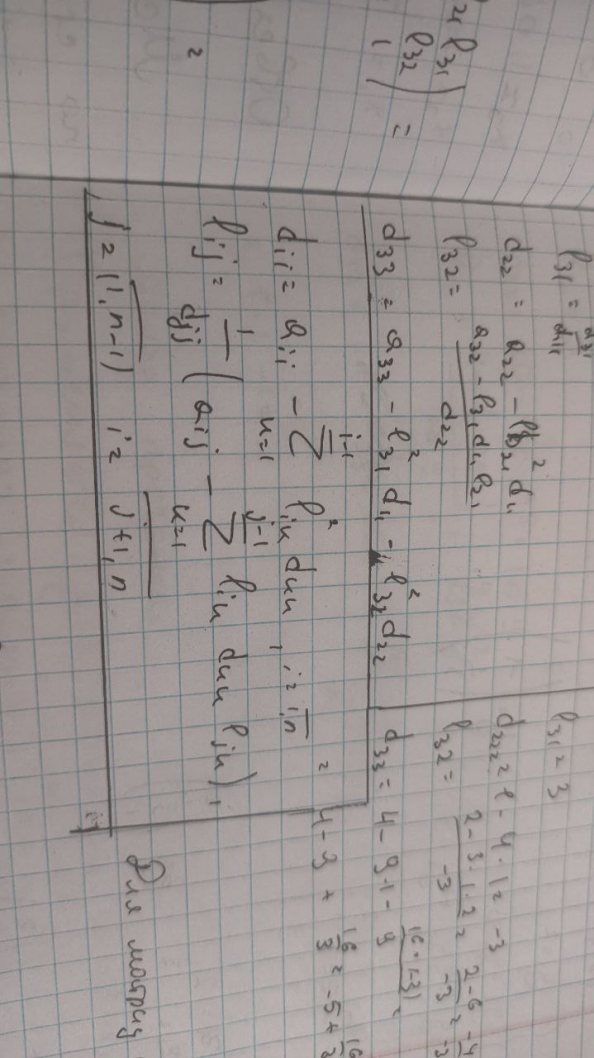 l₃₁
l₃₂
1 ) =
l₃₁ = a₃₁/d₁₁
d₂₂ = a₂₂ - l²₂₁ d₁₁
l₃₂ = (a₃₂ - l₃₁ d₁₁ l₂₁)/d₂₂
d₃₃ = a₃₃ - l²₃₁ d₁₁ - l²₃₂ d₂₂
dᵢᵢ = aᵢᵢ - Σ_{k=1}^{i-1} l²ᵢₖ dₖₖ, i = 1,n
lᵢⱼ = 1/dⱼⱼ (aᵢⱼ - Σ_{k=1}^{j-1} lᵢₖ dₖₖ lⱼₖ),
j = (1, n-1) i = j+1, n
l₃₁ = 3
d₂₂ = 1 - 4·1 = -3
l₃₂ = (2 - 3·1·2)/-3 = (2-6)/-3 = -4/-3
d₃₃ = 4 - 9·1 - 16·(-3)/9 =
= 4 - 9 + 16/3 = -5 + 16/3
Для матриц